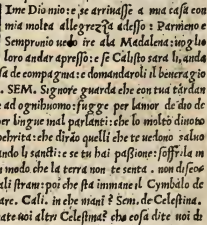 Ime Dio mio: e, se arriuasse a mia casa con
mia molta allegrezza adesso: Parmeno e
Sempronio uedo ire ala Madalena: uoglio
loro andar apresso: e se Calisto sara li, anda
sa de compagnia: e domandaroli il beueragio
. SEM. Signore guarda che con tua tardan
e ad ognihuomo: fugge per lamor de dio de
per lingue mal parlanti: che lo molto dinoto
pehrita: che dirão quelli che te uedono saluo
ando li sancti: e se tu hai passione: soffrila in
n modo che la terra non te senta . non discoe
ali strani: poi che sta inmane il Cymbalo de
are. Cali. in che mani? Sem. de Celestina.
ate uoi altri Celestina? che cosa dite uoi di